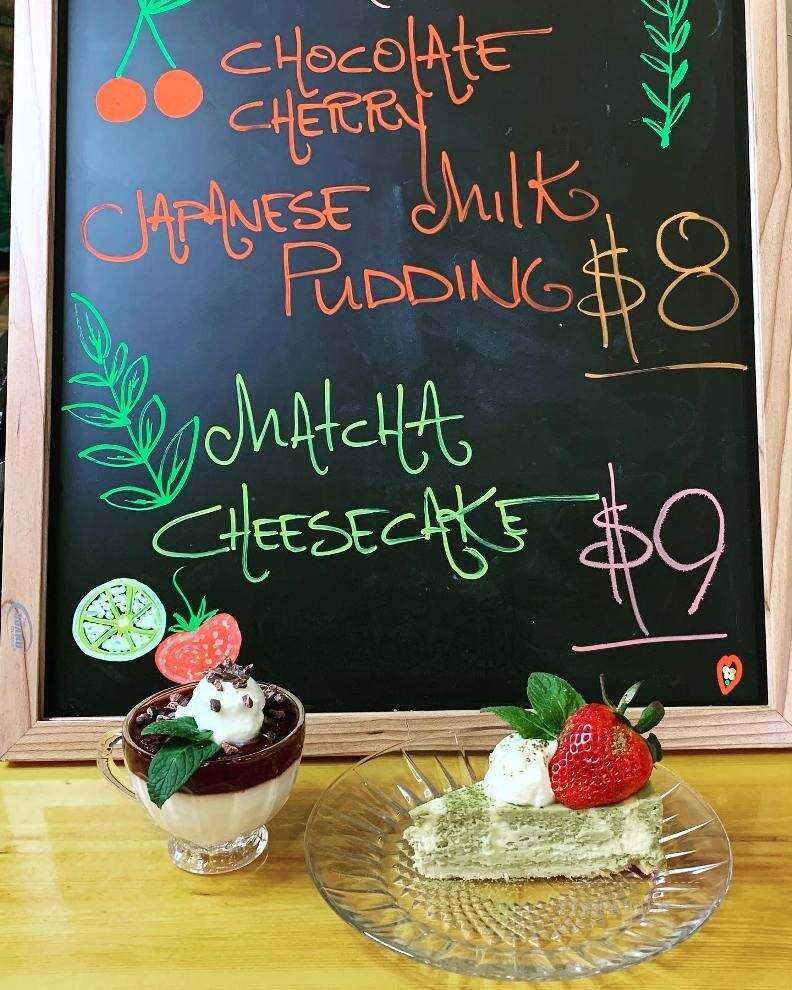 CHOCOLATE
CHERRY
JAPANESE MILK
PUDDING $8
MATCHA
CHEESECAKE $9